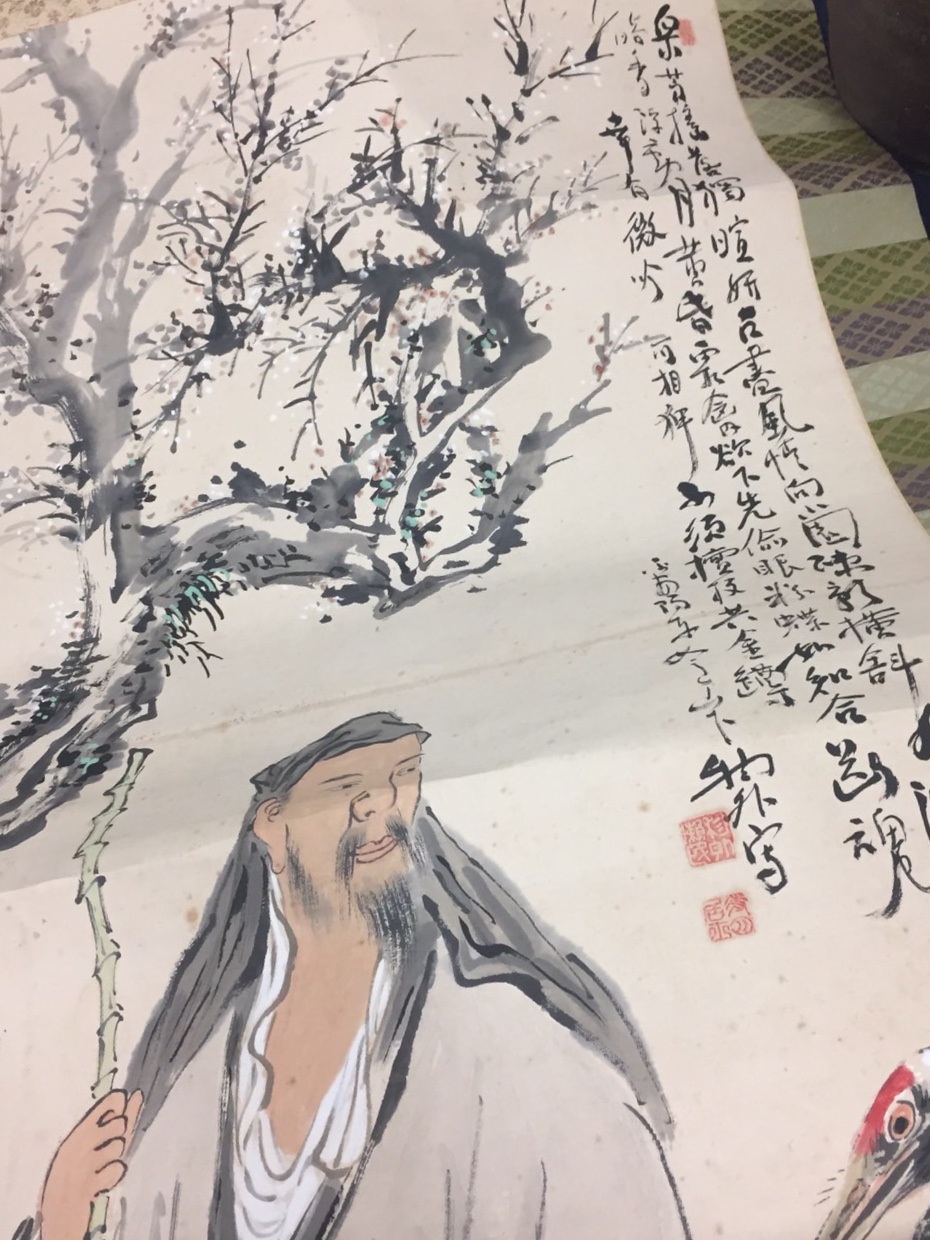 衆芳搖落獨暄妍占盡風情向小園疎影横斜
暗香浮動月黄昏霜禽欲下先偸眼粉蝶如知合断魂
幸有微吟可相狎不須檀板共金罇
物外写